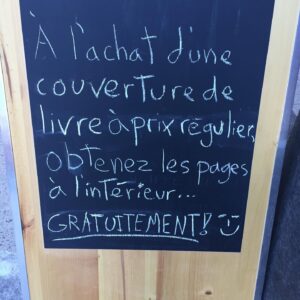 À l'achat d'une
couverture de
livre à prix régulier,
obtenez les pages
à l'intérieur...
GRATUITEMENT! :)